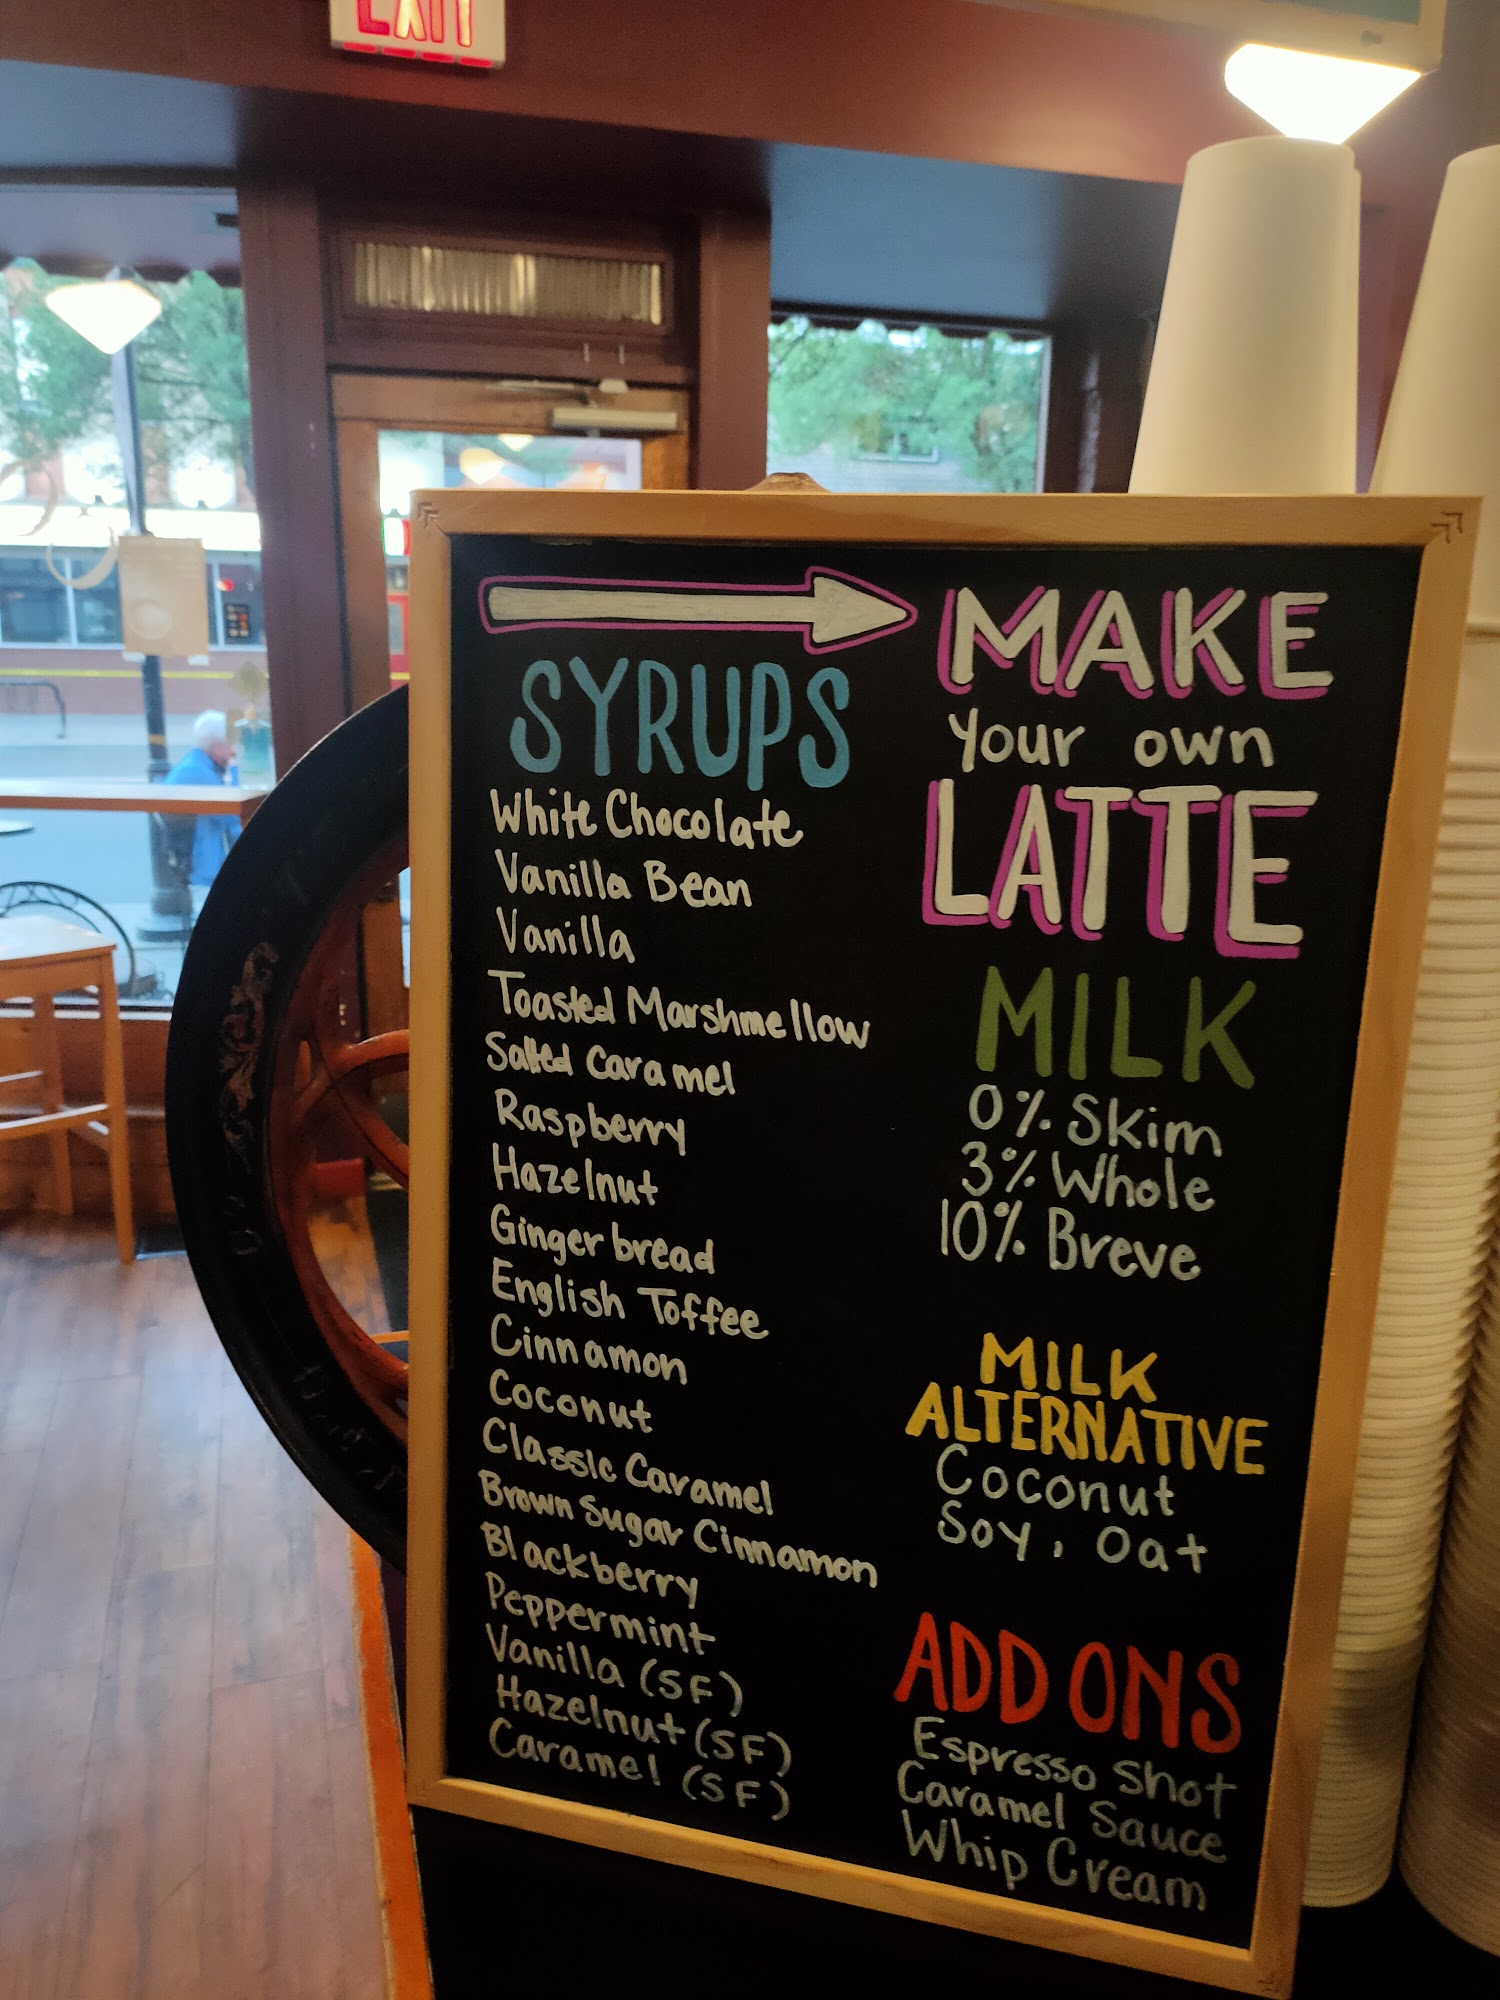 EXIT
SYRUPS
White Chocolate
Vanilla Bean
Vanilla
Toasted Marshmellow
Salted Caramel
Raspberry
Hazelnut
Gingerbread
English Toffee
Cinnamon
Coconut
Classic Caramel
Brown Sugar Cinnamon
Blackberry
Peppermint
Vanilla (SF)
Hazelnut (SF)
Caramel (SF)
MAKE
your own
LATTE
MILK
0% Skim
3% Whole
10% Breve
MILK
ALTERNATIVE
Coconut
Soy, Oat
ADD ONS
Espresso Shot
Caramel Sauce
Whip Cream